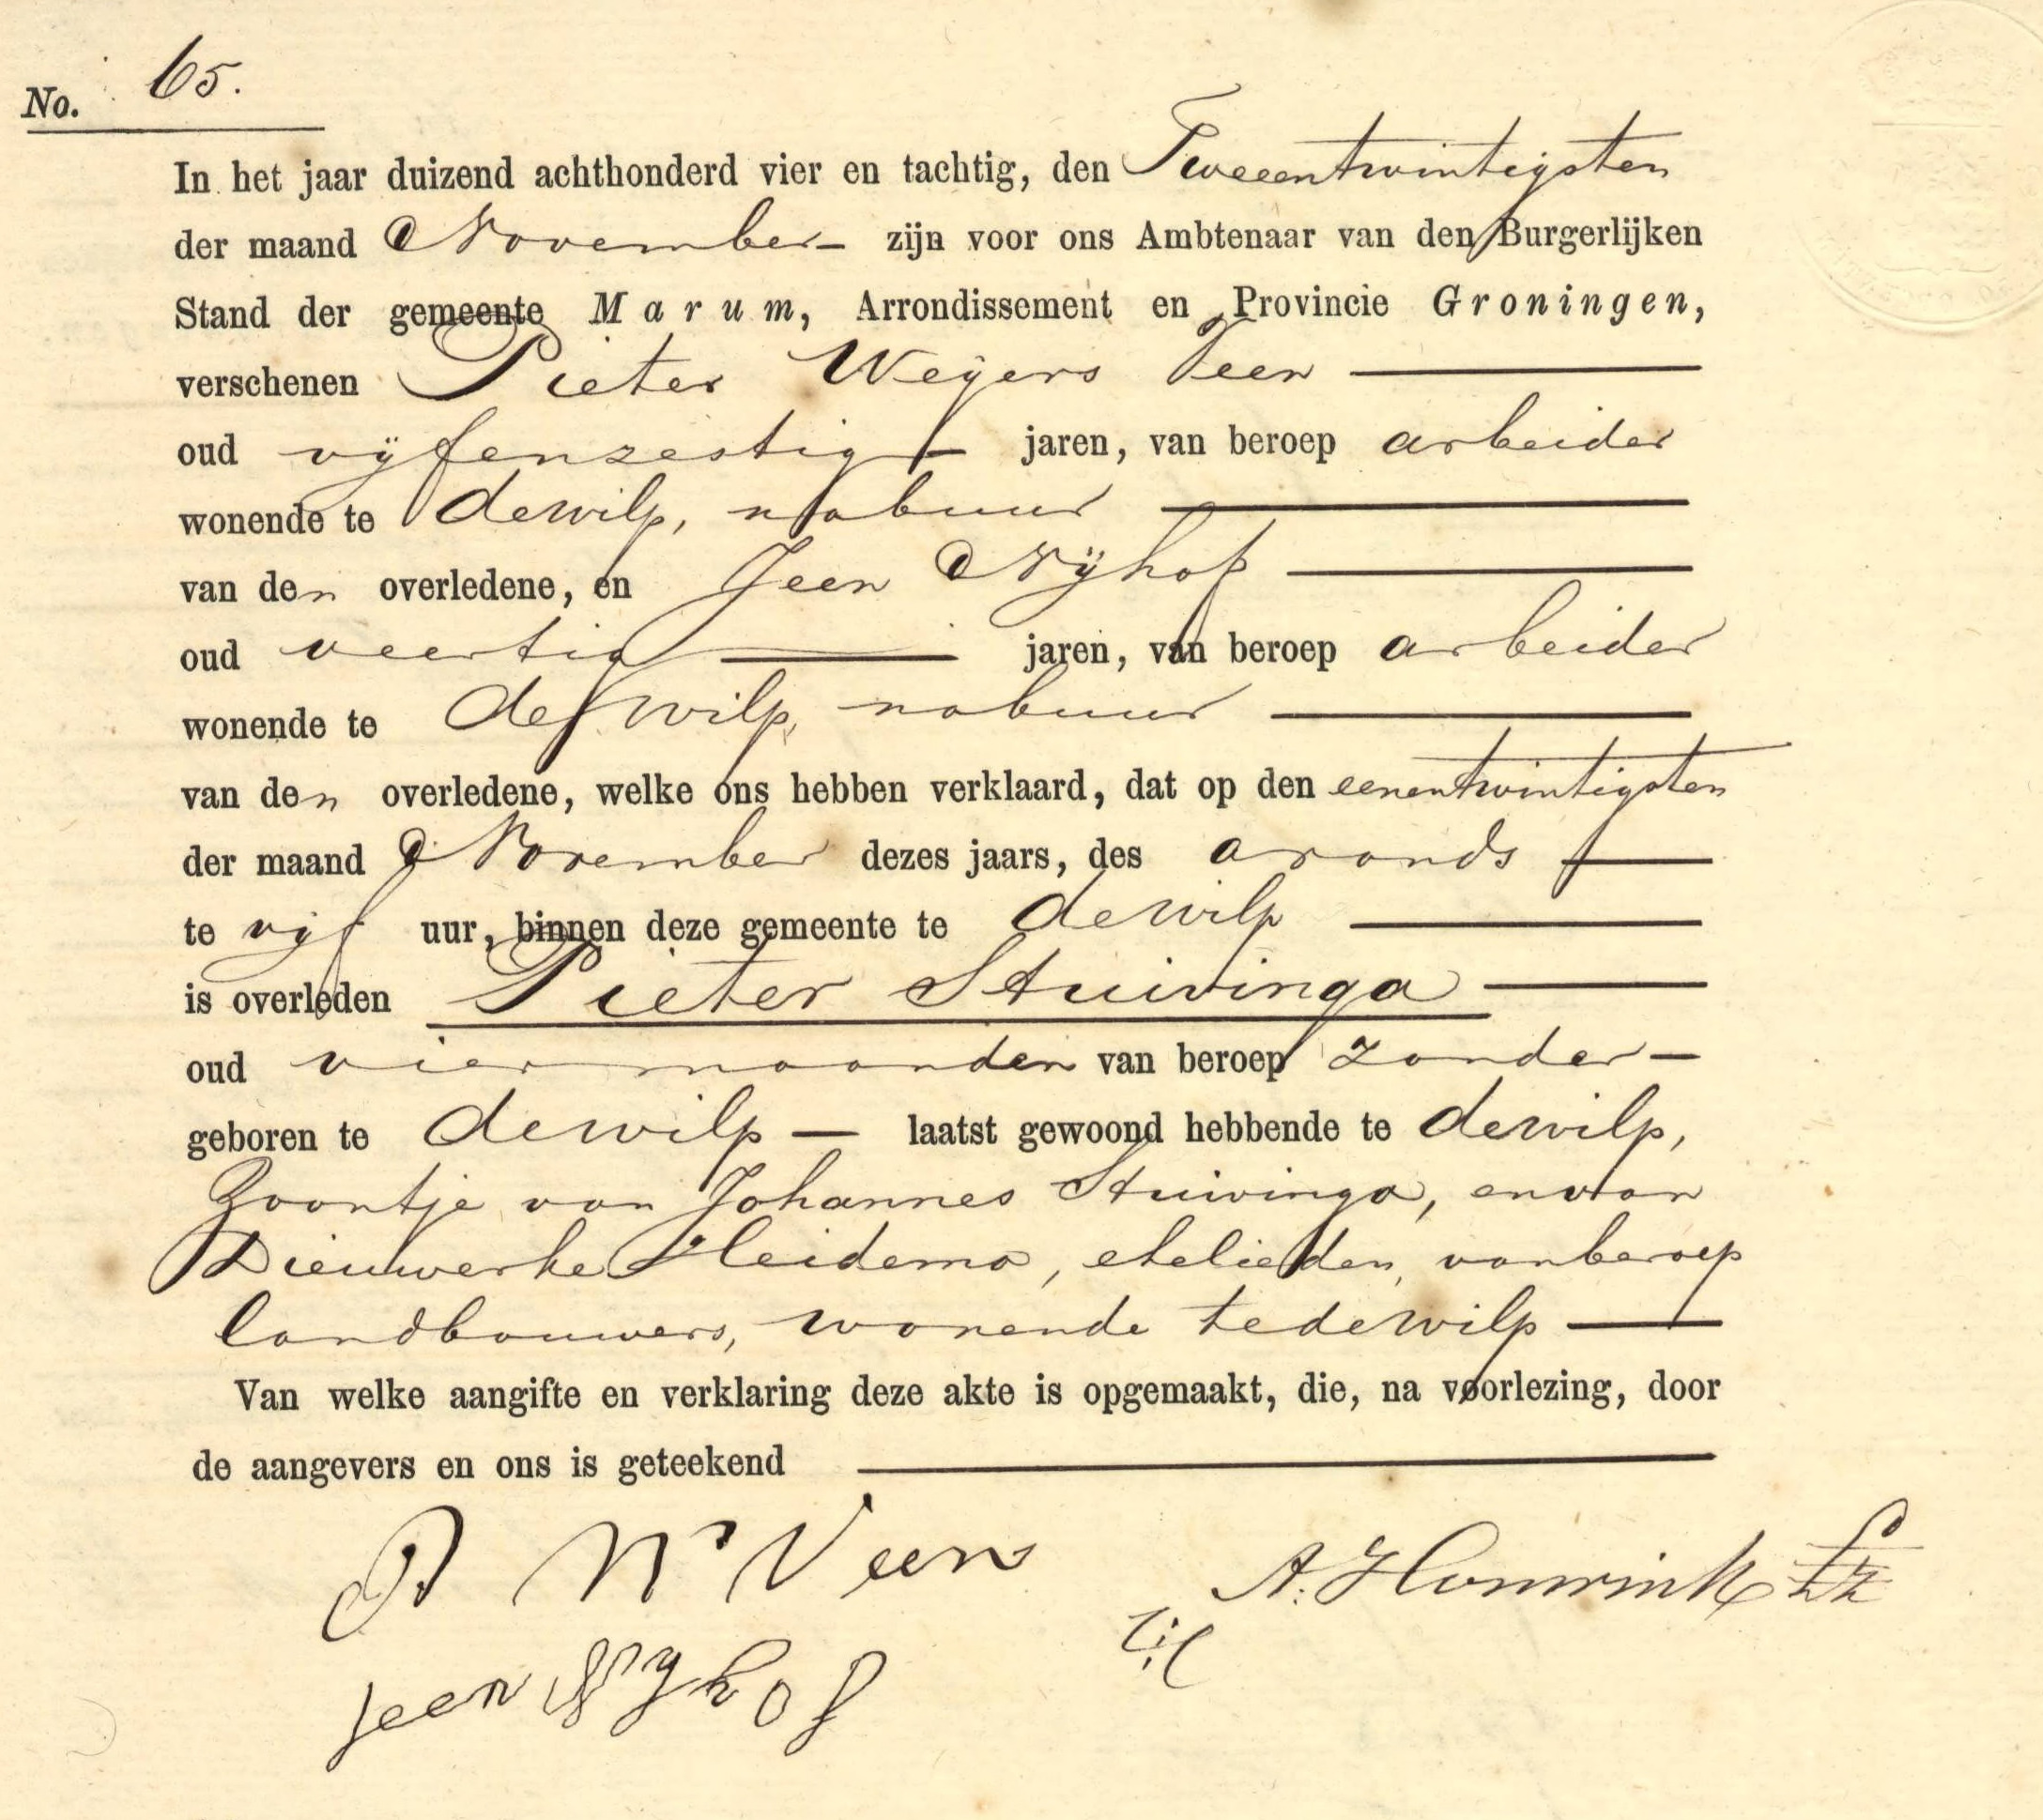 No. 65.
In het jaar duizend achthonderd vier en tachtig, den Tweeentwintigsten
der maand November zijn voor ons Ambtenaar van den Burgerlijken
Stand der gemeente Marum, Arrondissement en Provincie Groningen,
verschenen Pieter Weijers Veen
oud vijfenzestig jaren, van beroep arbeider
wonende te dewilp, nabuur
van den overledene, en Jeen Nijhof
oud veertig jaren, van beroep arbeider
wonende te de wilp, nabuur
van den overledene, welke ons hebben verklaard, dat op den eenentwintigsten
der maand November dezes jaars, des avonds
te vijf uur, binnen deze gemeente te dewilp
is overleden Pieter Stuivinga
oud vier maanden van beroep zonder
geboren te dewilp laatst gewoond hebbende te dewilp,
Zoontje van Johannes Stuivinga, en van
Dieuwerke Heidema, echtelieden, van beroep
landbouwers, wonende te dewilp
Van welke aangifte en verklaring deze akte is opgemaakt, die, na voorlezing, door
de aangevers en ons is geteekend
P W Veen
A. Honwink
Jeen Nyhof